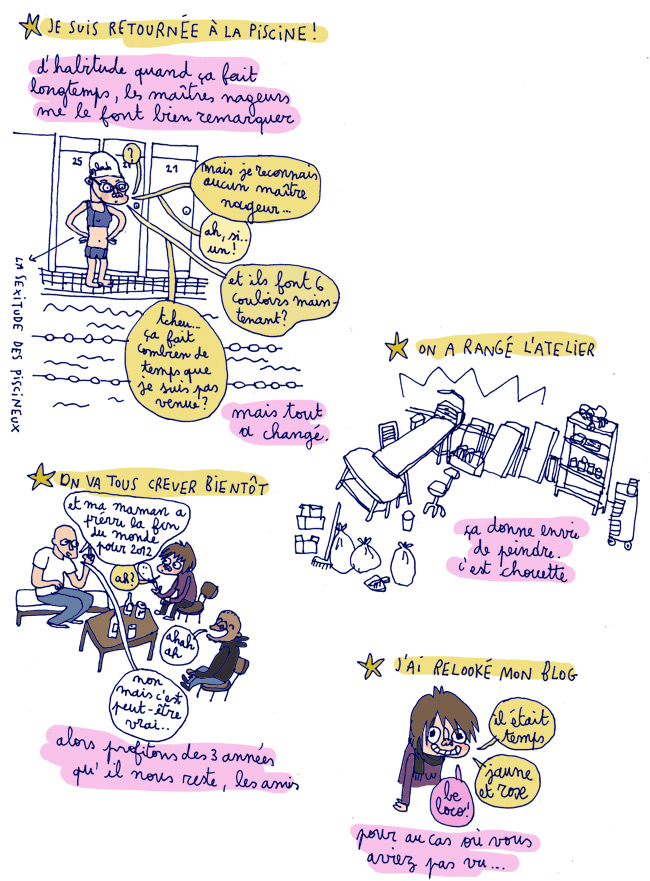 JE SUIS RETOURNÉE À LA PISCINE !
d'habitude quand ça fait
longtemps, les maîtres nageurs
me le font bien remarquer
?
25
21
mais je reconnais
aucun maître
nageur...
ah, si..
un !
et ils font 6
couloirs main-
tenant?
tcheu...
ça fait
combien de
temps que
je suis pas
venue ?
LA SEXITUDE DES PISCINEUX
mais tout
a changé.
ON A RANGÉ L'ATELIER
ça donne envie
de peindre.
c'est chouette
ON VA TOUS CREVER BIENTÔT
et ma maman a
prévu la fin
du monde
pour 2012
ah?
ahah
ah
non
mais c'est
peut-être
vrai...
alors profitons des 3 années
qu'il nous reste, les amis
J'AI RELOOKÉ MON BLOG
il était
temps
jaune
et rose
be
loco!
pour au cas où vous
aviez pas vu...